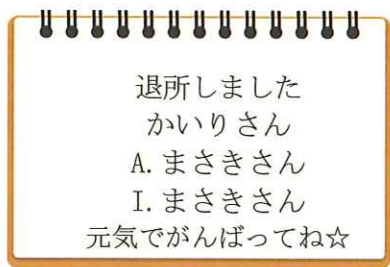 退所しました
かいりさん
A.まさきさん
I.まさきさん
元気でがんばってね☆